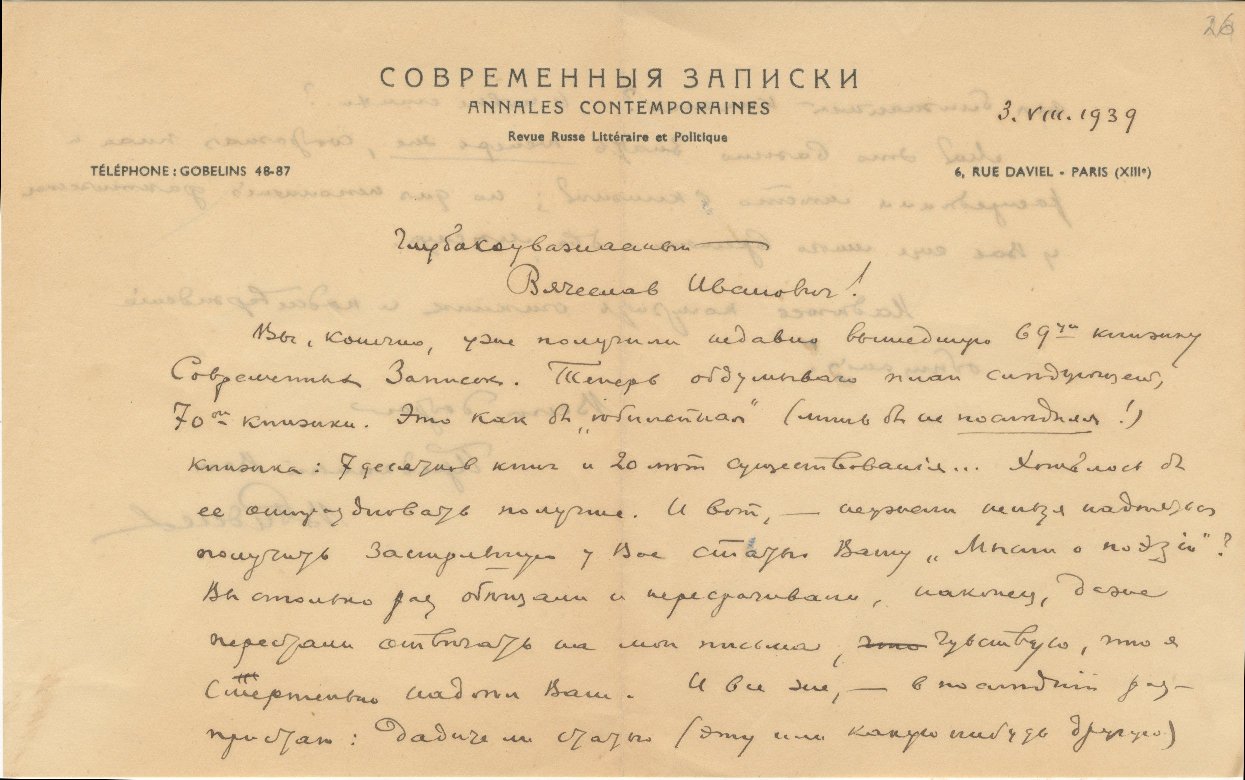 26
СОВРЕМЕННЫЯ ЗАПИСКИ
ANNALES CONTEMPORAINES
3. VIII. 1939
Revue Russe Littéraire et Politique
TÉLÉPHONE : GOBELINS 48-87
6, RUE DAVIEL - PARIS (XIIIe)
Глубокоуважаемый
Вячеслав Иванович!
Вы, конечно, уже получили недавно вышедшую 69ую книжку
Современных Записок. Теперь обдумываю план следующей,
70ой книжки. Это как бы „юбилейная" (лишь бы не последняя!)
книжка: 7 десятков книг и 20 лет существования... Хотелось бы
ее оборудовать получше. И вот, — неужели нельзя надеяться
получить застрявшую у Вас статью Вашу „Мысли о поэзiи"?
Вы столько раз обещали и пересрочивали, наконец, даже
перестали отвечать на мои письма, это чувствую, что я
смертельно надоел Вам. И все же, — в последнiй раз
пристаю: Дадите ли статью (эту или какую нибудь другую)